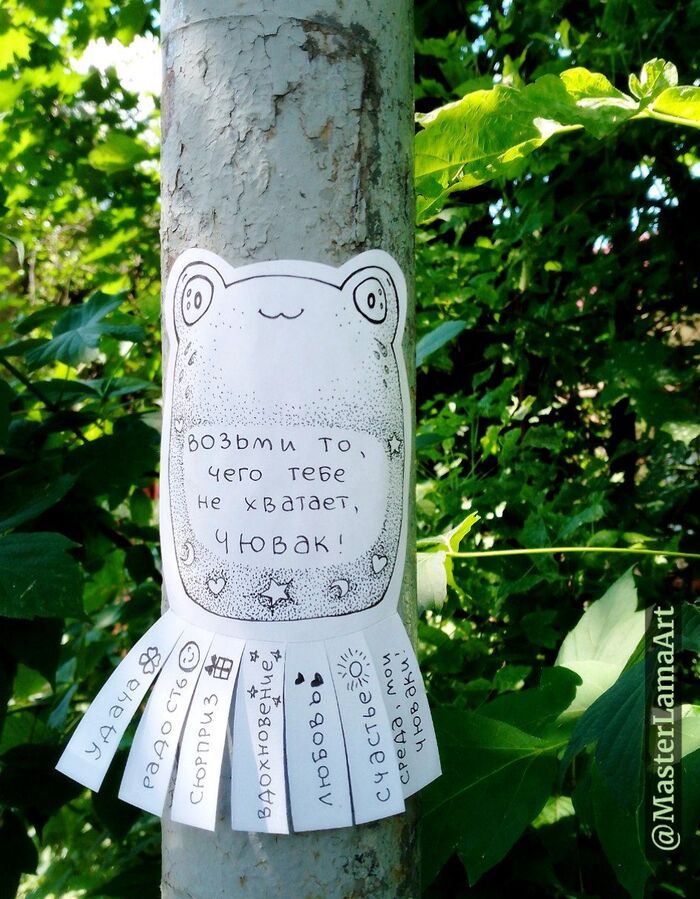 возьми то,
чего тебе
не хватает,
чювак!
удача
радость
сюрприз
вдохновение
любовь
счастье
среда, мои
чюваки!
@MasterLamaArt